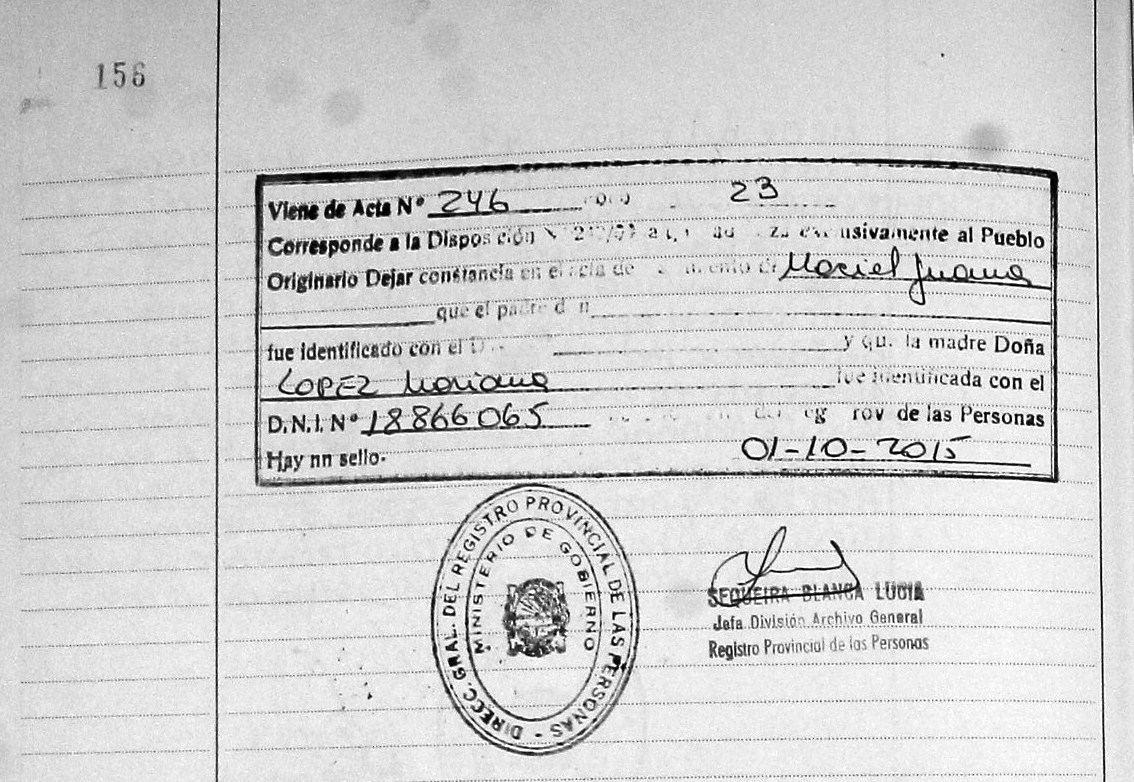 156
Viene de Acta Nº 246 23
Corresponde a la Disposición exclusivamente al Pueblo
Originario Dejar constancia en el acta de Maciel Juana
que el padre
fue identificado con el y que la madre Doña
LOPEZ Mariana fue identificada con el
D.N.I. Nº 18866065 de las Personas
Hay nn sello- 01-10-2015
DIRECC. GRAL. DEL REGISTRO PROVINCIAL DE LAS PERSONAS -
MINISTERIO DE GOBIERNO
SEQUEIRA BLANCA LUCIA
Jefa División Archivo General
Registro Provincial de las Personas